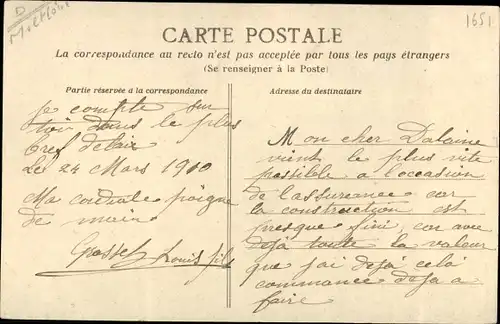 D
1651
CARTE POSTALE
La correspondance au recto n'est pas acceptée par tous les pays étrangers
(Se renseigner à la Poste)
Partie réservée à la correspondance
Adresse du destinataire
Mon cher Dalaine
vient le plus vite
possible à l'occasion
de l'assurence car
la construction est
presque fini, car avec
dejà toute la valeur
que j'ai dejà celà
commance deja a
faire
je compte sur
toi dans le plus
bref delais
Le 24 Mars 1910
Ma cordiale poigne
de main
Grosset Louis fils